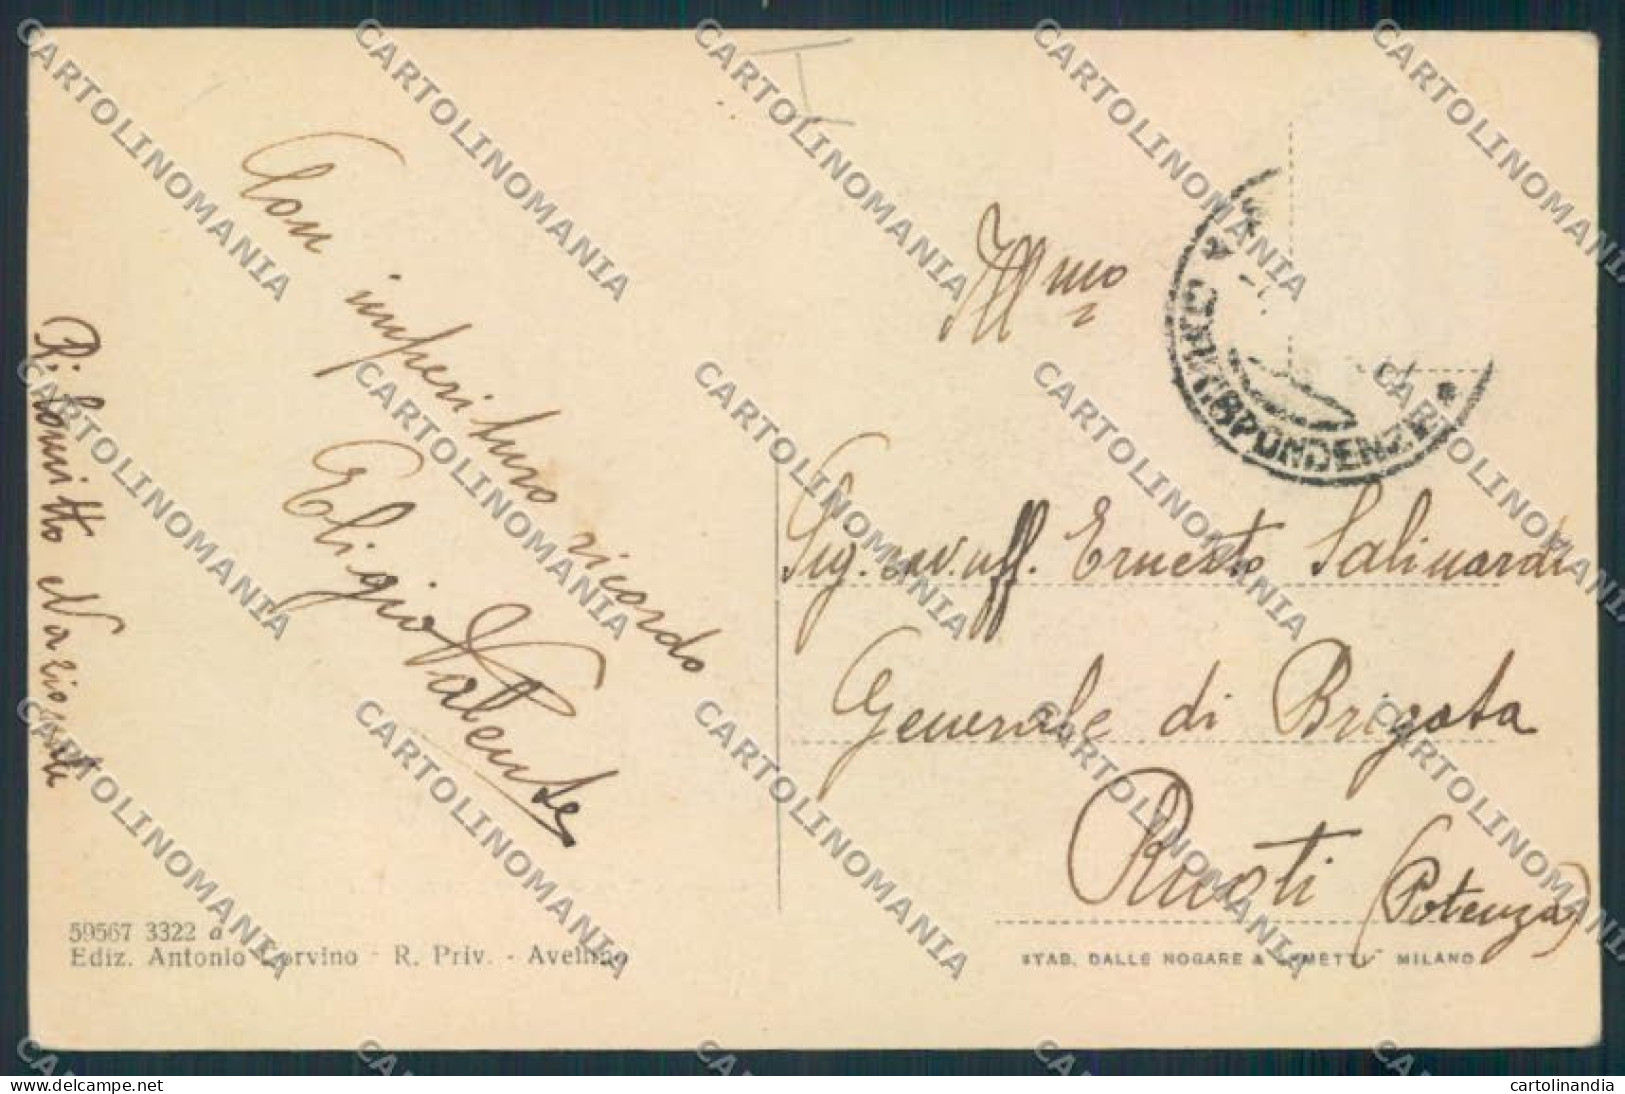 Con
imperituro
ricordo
Eligio Valente
Ill mo
Sig. cav. uff. Ernesto Salinardi
Generale di Brigata
Ruoti (Potenza)
CORRISPONDENZE
59567 3322 a
Ediz. Antonio Corvino - R. Priv. - Avellino
STAB. DALLE NOGARE & ARMETTI - MILANO
CARTOLINOMANIA
cartolinandia